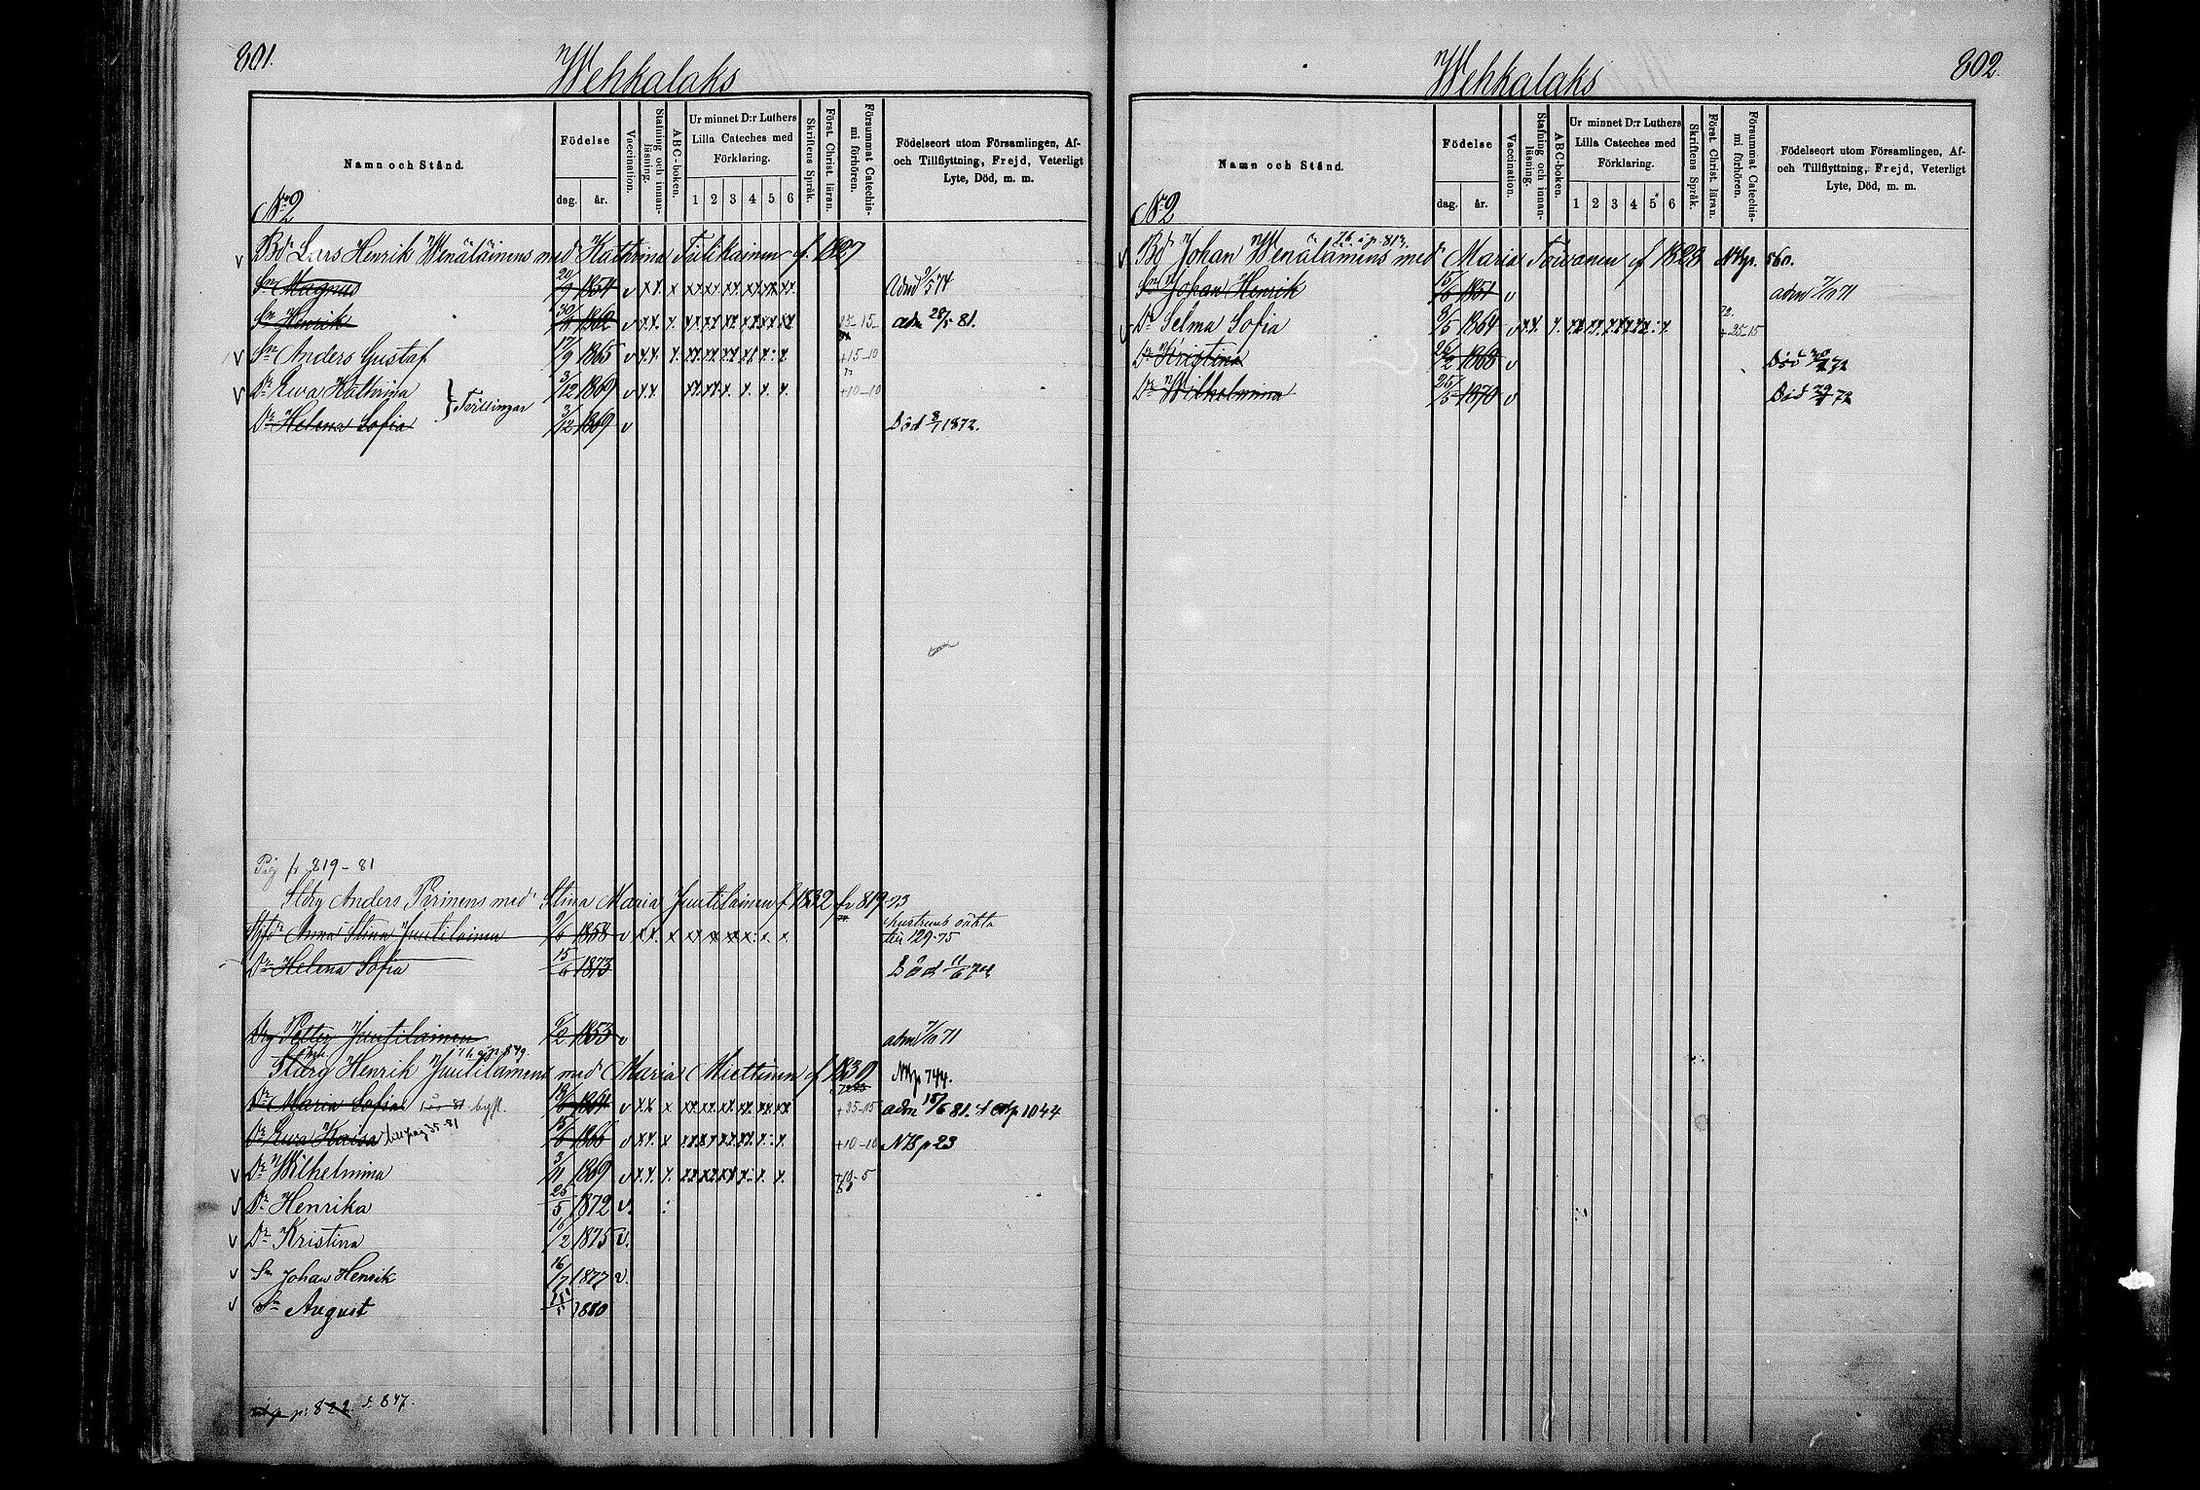 801.
Wehkalaks
Namn och Stånd.
Födelse
dag. år.
Vaccination.
Stafning och innanläsning.
ABC-boken.
Ur minnet D:r Luthers Lilla Cateches med Förklaring.
1 2 3 4 5 6
Skriftens Språk.
Först. Christ. läran.
Försummat Catechismi förhören.
Födelseort utom Församlingen, Af- och Tillflyttning, Frejd, Veterligt Lyte, Död, m. m.
No 2
Bd Lars Henrik Wenäläinens med Kathrina Tiilikainen f. 1827
Sn Magnus 20/9 1854 v
Sn Henrik 30/11 1862 v 15-15 adm 28/5 81.
Sn Anders Gustaf 17/9 1865 v +15-10
Dr Ewa Kathrina 3/12 1869 v +10-10
} Tvillingar
Dr Helena Sofia 3/12 1869 v Död 8/7 1872.
fr 819-81
Anders Pirinens med Stina Maria Juutilainen f 1832 fr 819-73
Anna Stina Juutilainen 9/6 1858 v hustruns oäkta
till 129-75
Dr Helena Sofia 15/6 1873 Död 11/6 74
Petter Juutilainen 1853 v adm 71
Henrik Juutilainens med Maria Miettinen f 1830 744.
Dr Maria Sofia 1864 v +25-15 adm 15/6 81. 1044
Dr Ewa Kaisa till pag 35-81 15/6 1866 v +10-10 NB p 23
Dr Wilhelmina 3/11 1869 v +10-5
Dr Henrika 25/5 1872 v
Dr Kristina 15/2 1875 v.
Sn Johan Henrik 16/7 1877 v.
Sn August 1880
p: 822 847.
802.
Wehkalaks
Namn och Stånd.
Födelse
dag. år.
Vaccination.
Stafning och innanläsning.
ABC-boken.
Ur minnet D:r Luthers Lilla Cateches med Förklaring.
1 2 3 4 5 6
Skriftens Språk.
Först. Christ. läran.
Försummat Catechismi förhören.
Födelseort utom Församlingen, Af- och Tillflyttning, Frejd, Veterligt Lyte, Död, m. m.
No 2
p. 813.
Bd Johan Wenäläinens med Maria Toivanen f 1823 560.
Sn Johan Henrik 15/6 1851 v adm 71
Dr Selma Sofia 5/5 1864 v +25-15
Dr Kristina 26/2 1868 v Död 72
Dr Wilhelmina 25/5 1870 v Död 72